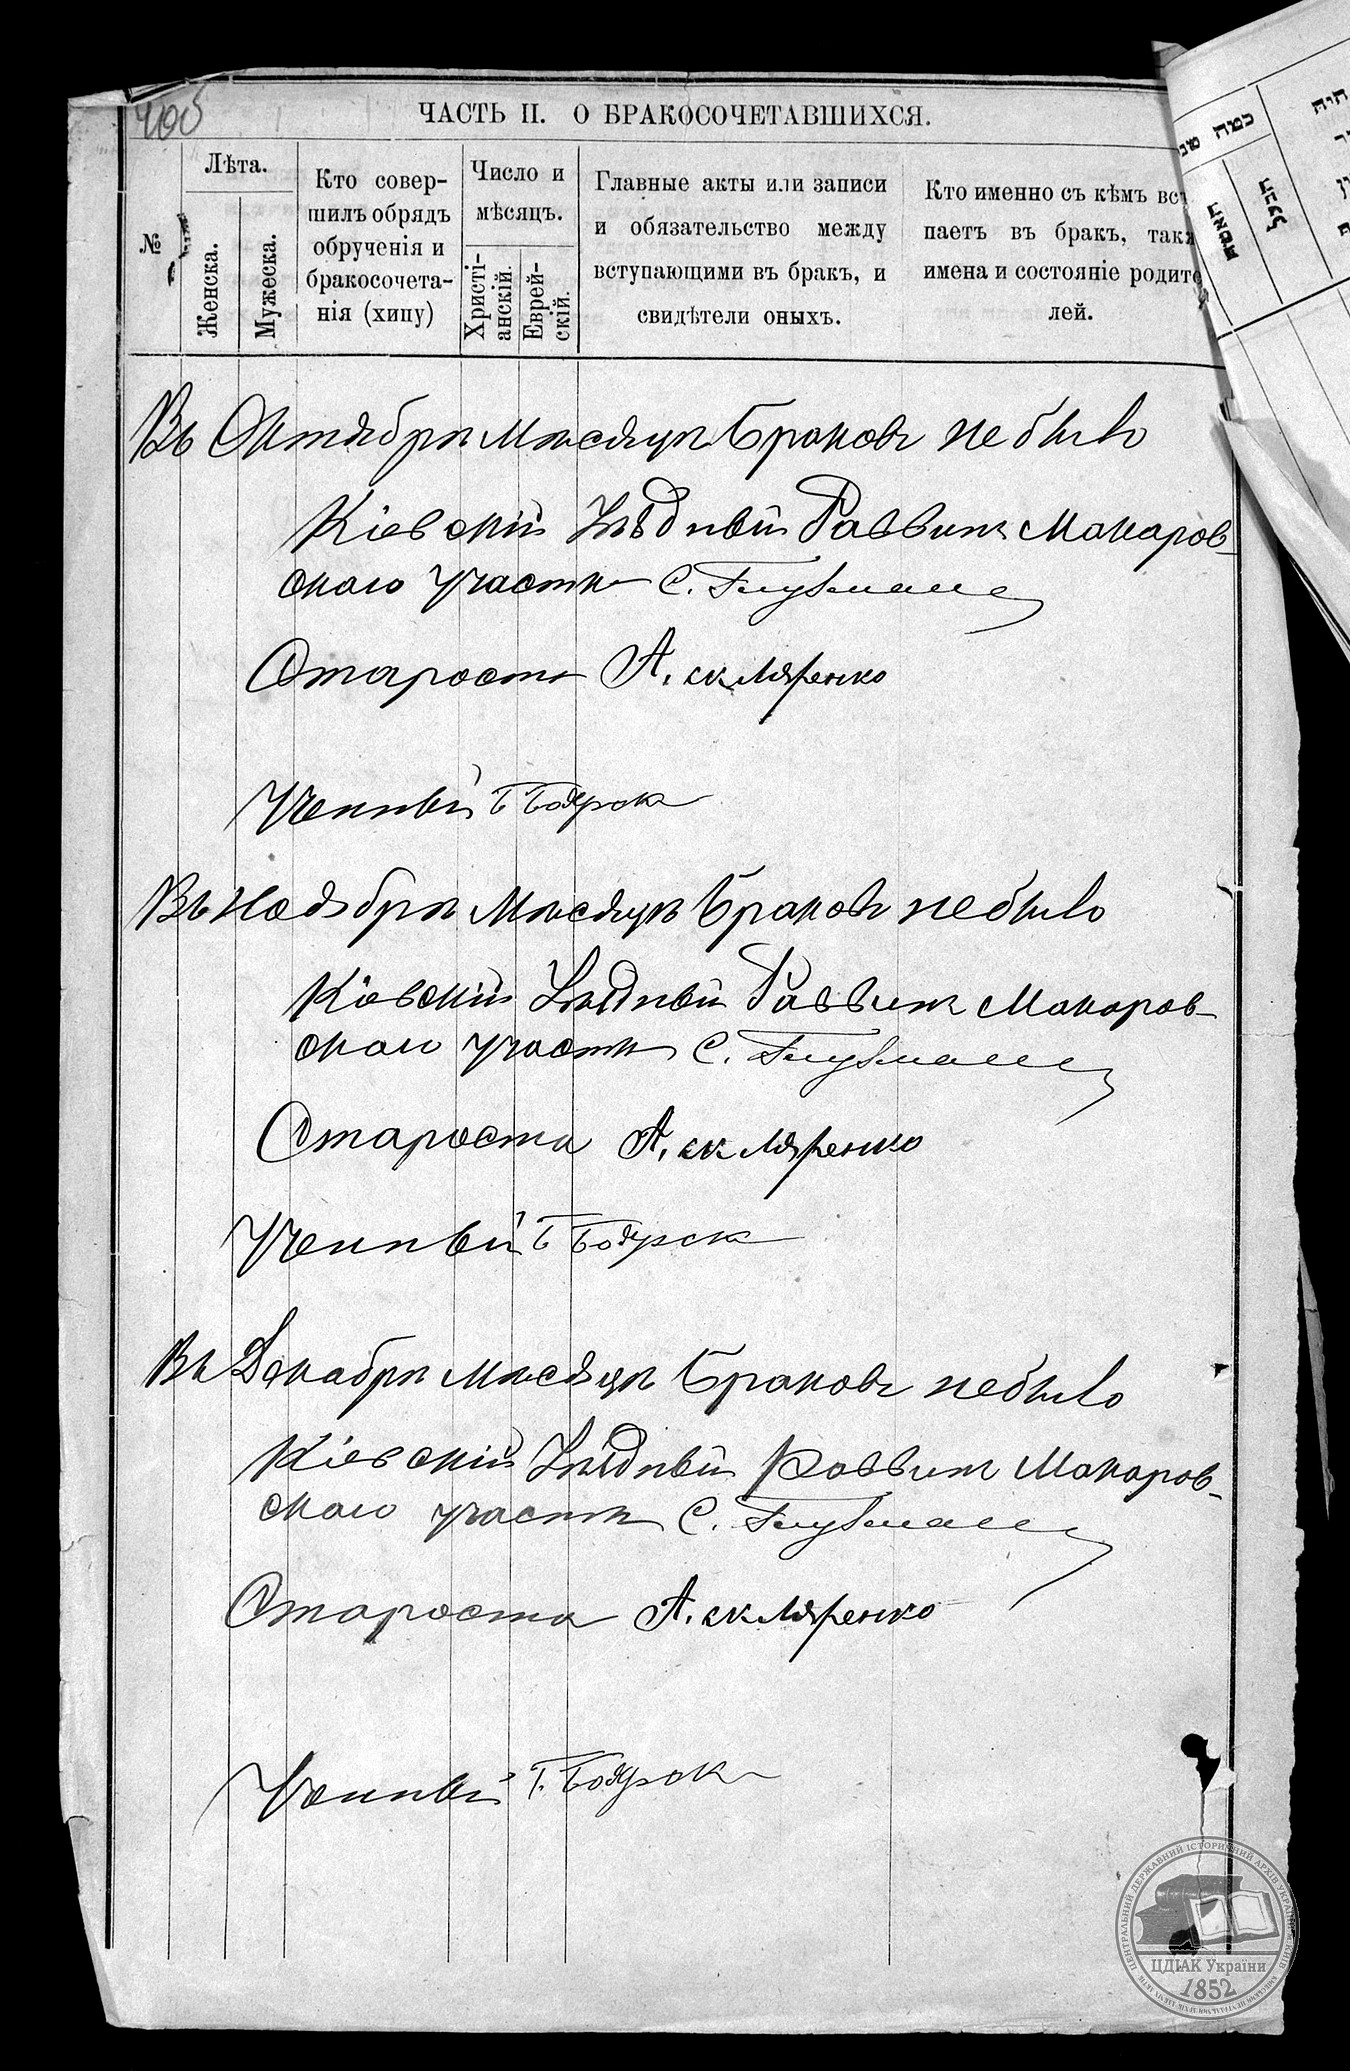 ЧАСТЬ II. О БРАКОСОЧЕТАВШИХСЯ.
№
Лѣта.
Женска.
Мужеска.
Кто совер-
шилъ обрядъ
обрученія и
бракосочета-
нія (хипу)
Число и
мѣсяцъ.
Христі-
анскій.
Еврей-
скій.
Главные акты или записи
и обязательство между
вступающими въ бракъ, и
свидѣтели оныхъ.
Кто именно съ кѣмъ всту
паетъ въ бракъ, такж
имена и состояніе родите
лей.
Въ Октябрѣ мѣсяцѣ Браковъ не было
Кіевскій Уѣздный Раввинъ Макаров-
скаго участка С. Глузманъ
Староста А. Скляренко
Ученый Б Боярск
Въ Ноябрѣ Мѣсяцѣ Браковъ не было
Кіевскій Уѣздный Раввинъ Макаров-
скаго участка С. Глузманъ
Староста А. Скляренко
Ученый Б Боярск
Въ Декабрѣ мѣсяцѣ Браковъ не было
Кіевскій Уѣздный Раввинъ Макаров-
скаго участка С. Глузманъ
Староста А. Скляренко
Ученый Б. Боярск
ЦЕНТРАЛЬНИЙ ДЕРЖАВНИЙ ІСТОРИЧНИЙ АРХІВ УКРАЇНИ, М. КИЇВ
ЦДІАК України
1852